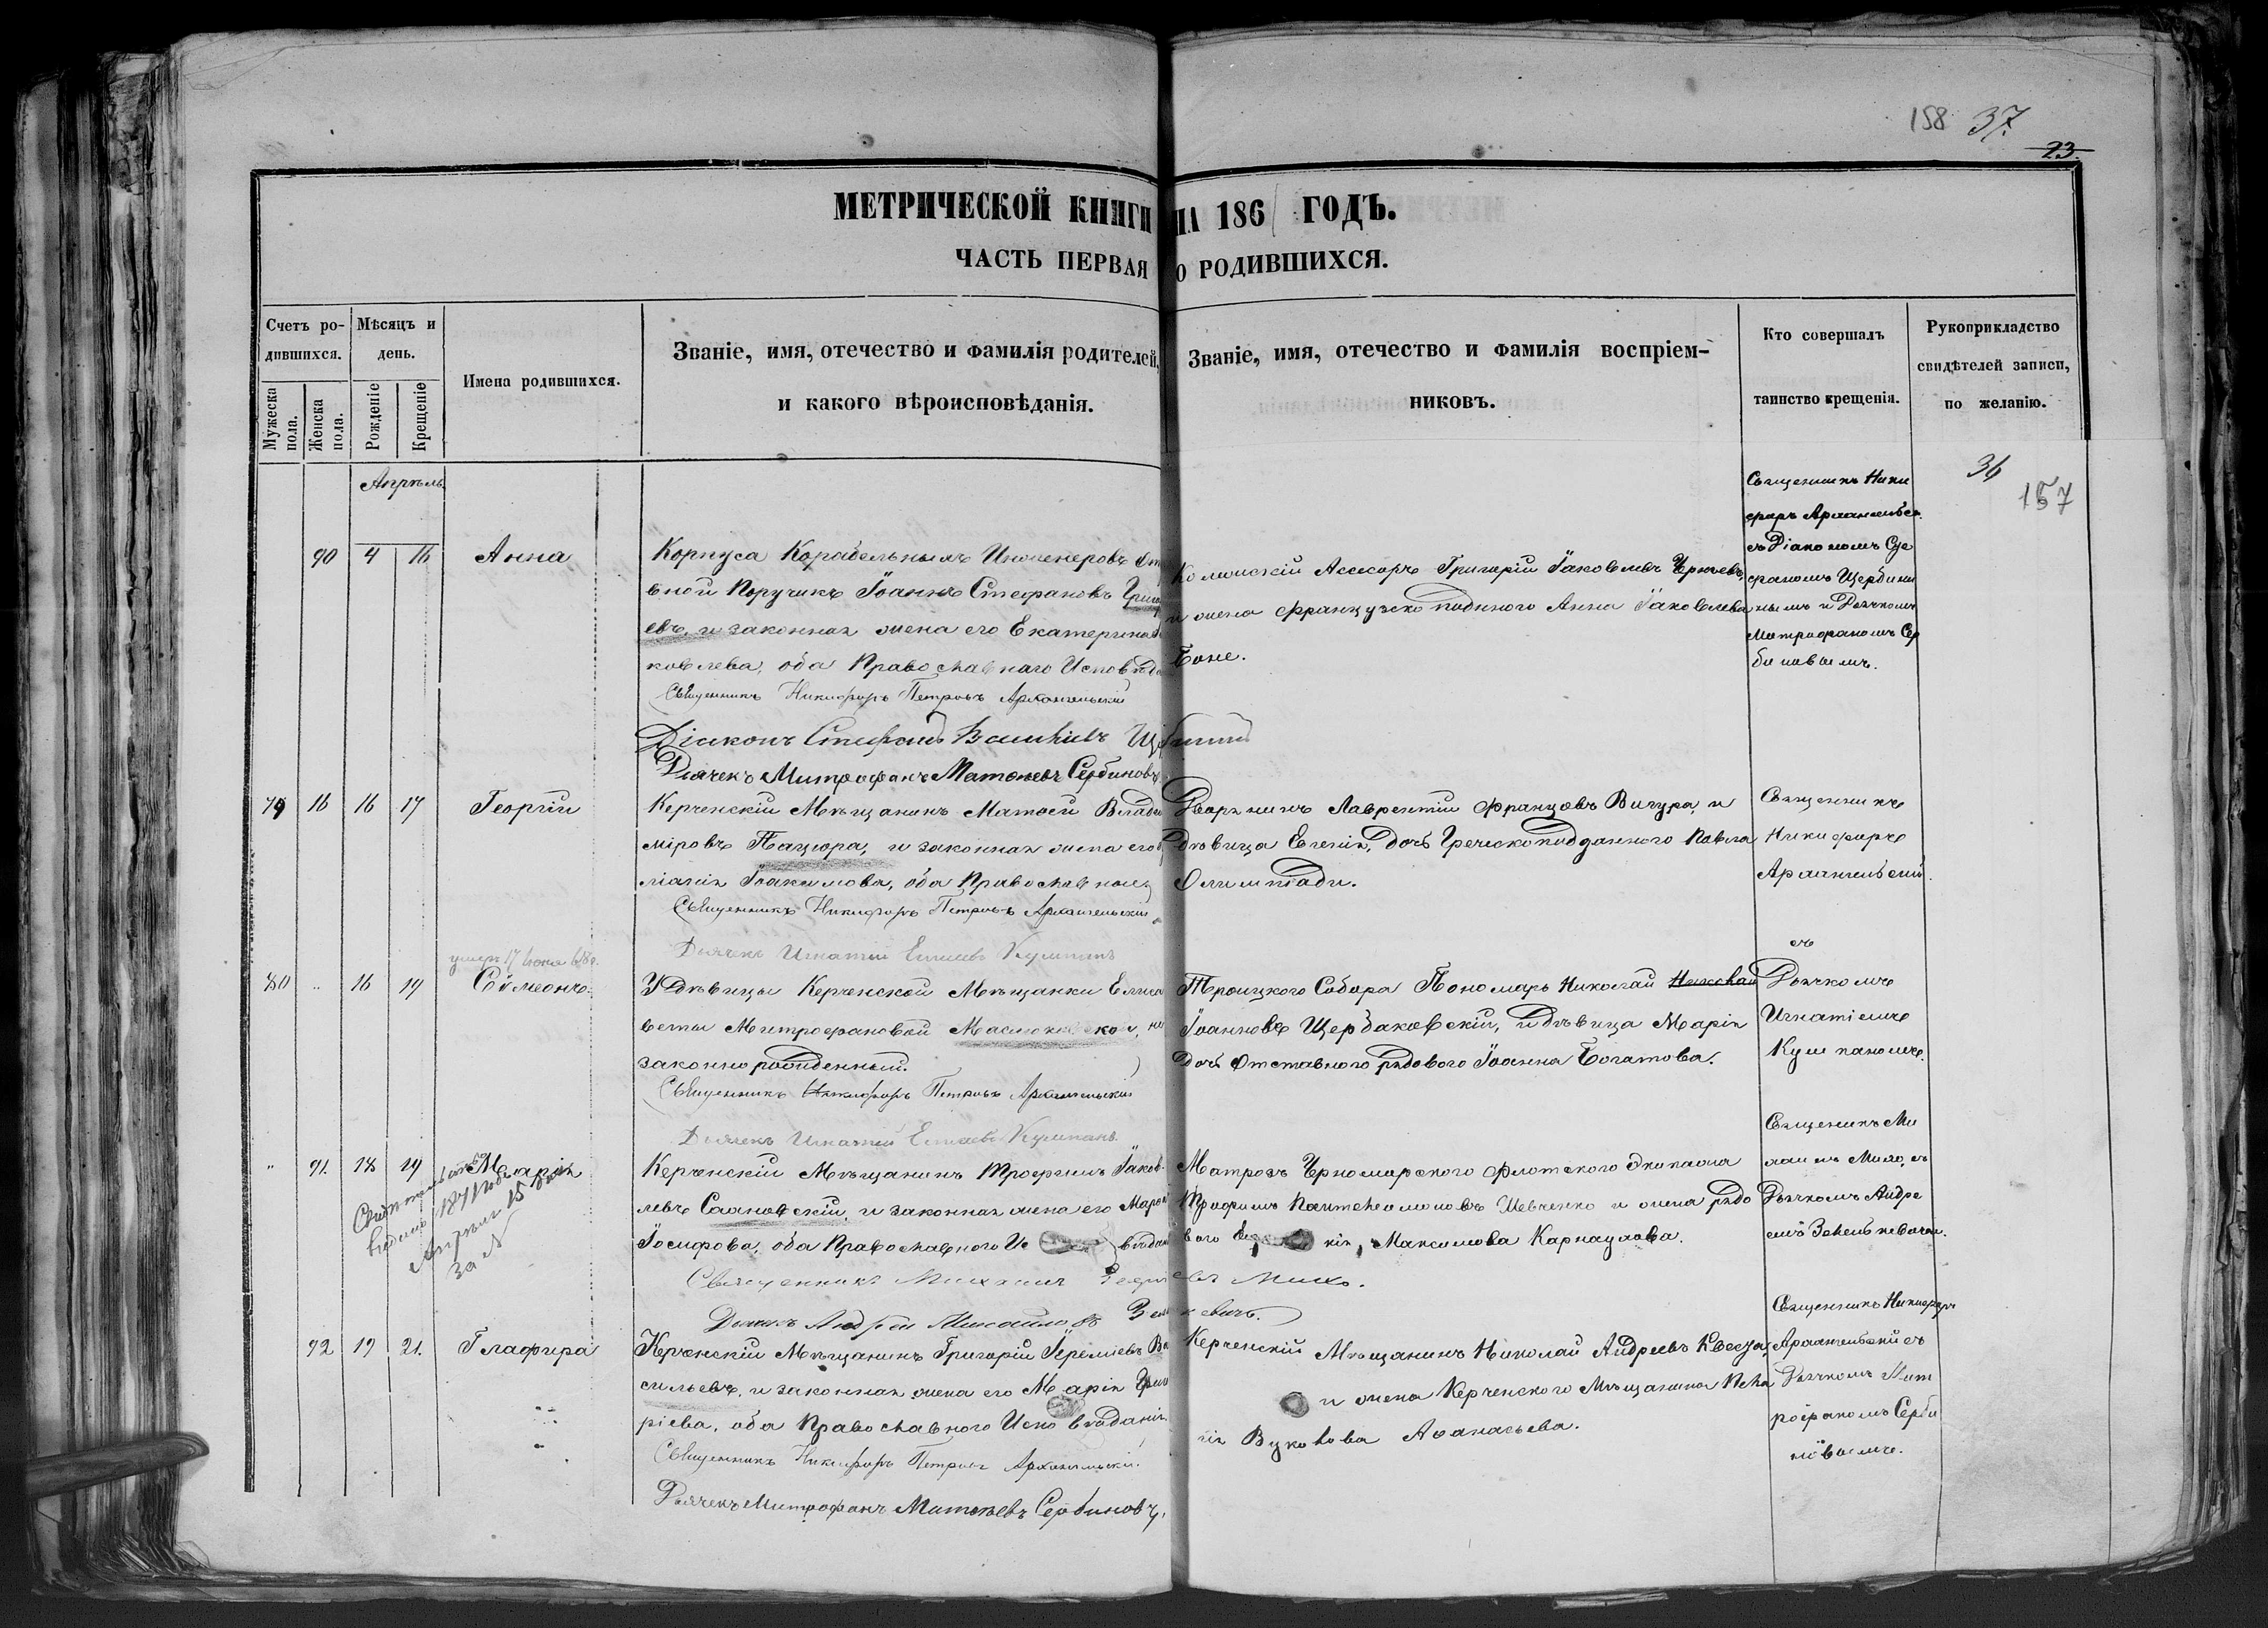 158 37.
23.
МЕТРИЧЕСКОЙ КНИГИ НА 1861 ГОДЪ.
ЧАСТЬ ПЕРВАЯ О РОДИВШИХСЯ.
Счетъ ро-
дившихся.
Мѣсяцъ и
день.
Мужеска
пола.
Женска
пола.
Рожденіе
Крещеніе
Имена родившихся.
Званіе, имя, отечество и фамилія родителей,
и какого вѣроисповѣданія.
Званіе, имя, отечество и фамилія воспріем-
никовъ.
Кто совершалъ
таинство крещенія.
Рукоприкладство
свидѣтелей записи,
по желанію.
36
157
Апрѣль
90 4 16 Анна
Корпуса Корабельныхъ Инженеровъ
вной Поручикъ Іоаннъ Стефановъ
евъ, и законная жена его Екатерина
ковлева, оба Православнаго Исповѣда
Священникъ Никифоръ Петровъ Архангельскій
Діаконъ Стефанъ
Дьячекъ Митрофанъ Матѳеевъ Сербиновъ
Ассесоръ Григорій Іаковлевъ
и жена французско подднаго Анна Іаковлева
Боне.
Священникъ Ники
форъ Архангельск.
съ Діакономъ Сте
фаномъ Щербини
нымъ и Дьячкомъ
Митрофаномъ Сер
биновымъ.
79 16 17 Георгій
Керченскій Мѣщанинъ Матѳей Влади
міровъ Пацюра, и законная жена его
Іоакимова, оба Православные
Священникъ Никифоръ Петровъ Архангельскій
Дьячекъ Игнатій Кушпанъ
Дворянинъ Лаврентій Францовъ Вигура, и
Дѣвица Евгенія, Дочь Греческоподданного Павла
Олимпіади.
Священникъ
Никифоръ
Архангельскій
умеръ 17 Іюня
80 " 16 19 Сѵмеонъ
У Дѣвицы Керченской Мѣщанки Елиса
веты Митрофановой не
законнорожденный.
Священникъ Никифоръ Петровъ Архангельскій
Дьячекъ Игнатій Кушпанъ
Троицкого Собора Пономарь Николай Николай
Іоанновъ Щербаковскій, и дѣвица Марія
Дочь Отставного рядового Іоанна Богатова.
съ
Дьячкомъ
Игнатіемъ
Кушпаномъ.
" 91. 18 19 Марія
Свидѣтельство
выдано 1871 года
Апрѣля 15 дня
за №
Керченскій Мѣщанинъ Трофимъ Іаков
левъ и законная жена его
Іосифова, оба Православного Ис вѣдан
Священникъ Михаилъ Михо.
Дьячекъ Андрей Михайловъ
Матросъ Черноморского флотского Экипажа
Трофимъ Пантелеомоновъ Шевченко и жена рядо
вого Максимова Карнаухова.
Священникъ Ми
хаилъ Михо, съ
Дьячкомъ Андре
емъ
92 19 21. Глафира
Керченскій Мѣщанинъ Григорій Іереміевъ Ва
сильевъ, и законная жена его Марія
ріева, оба Православного Исповѣданія
Священникъ Никифоръ Петровъ Архангельскій
Дьячекъ Митрофанъ Матѳеевъ Сербиновъ.
Керченскій Мѣщанинъ Николай Андреевъ
и жена Керченского Мѣщанина
Вуколова Аѳанасьева.
Священникъ Никифоръ
Архангельскій съ
Дьячкомъ Мит
рофаномъ Серби
новымъ.